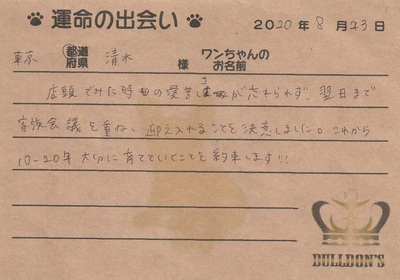 運命の出会い 2020年8月23日
東京 都道府県 清水 様 ワンちゃんのお名前
店頭でみた時の愛苦しさが忘れられず、翌日まで
家族会議を重ね、迎え入れることを決意しました。これから
10-20年大切に育てていくことを約束します!!
BULLDON'S